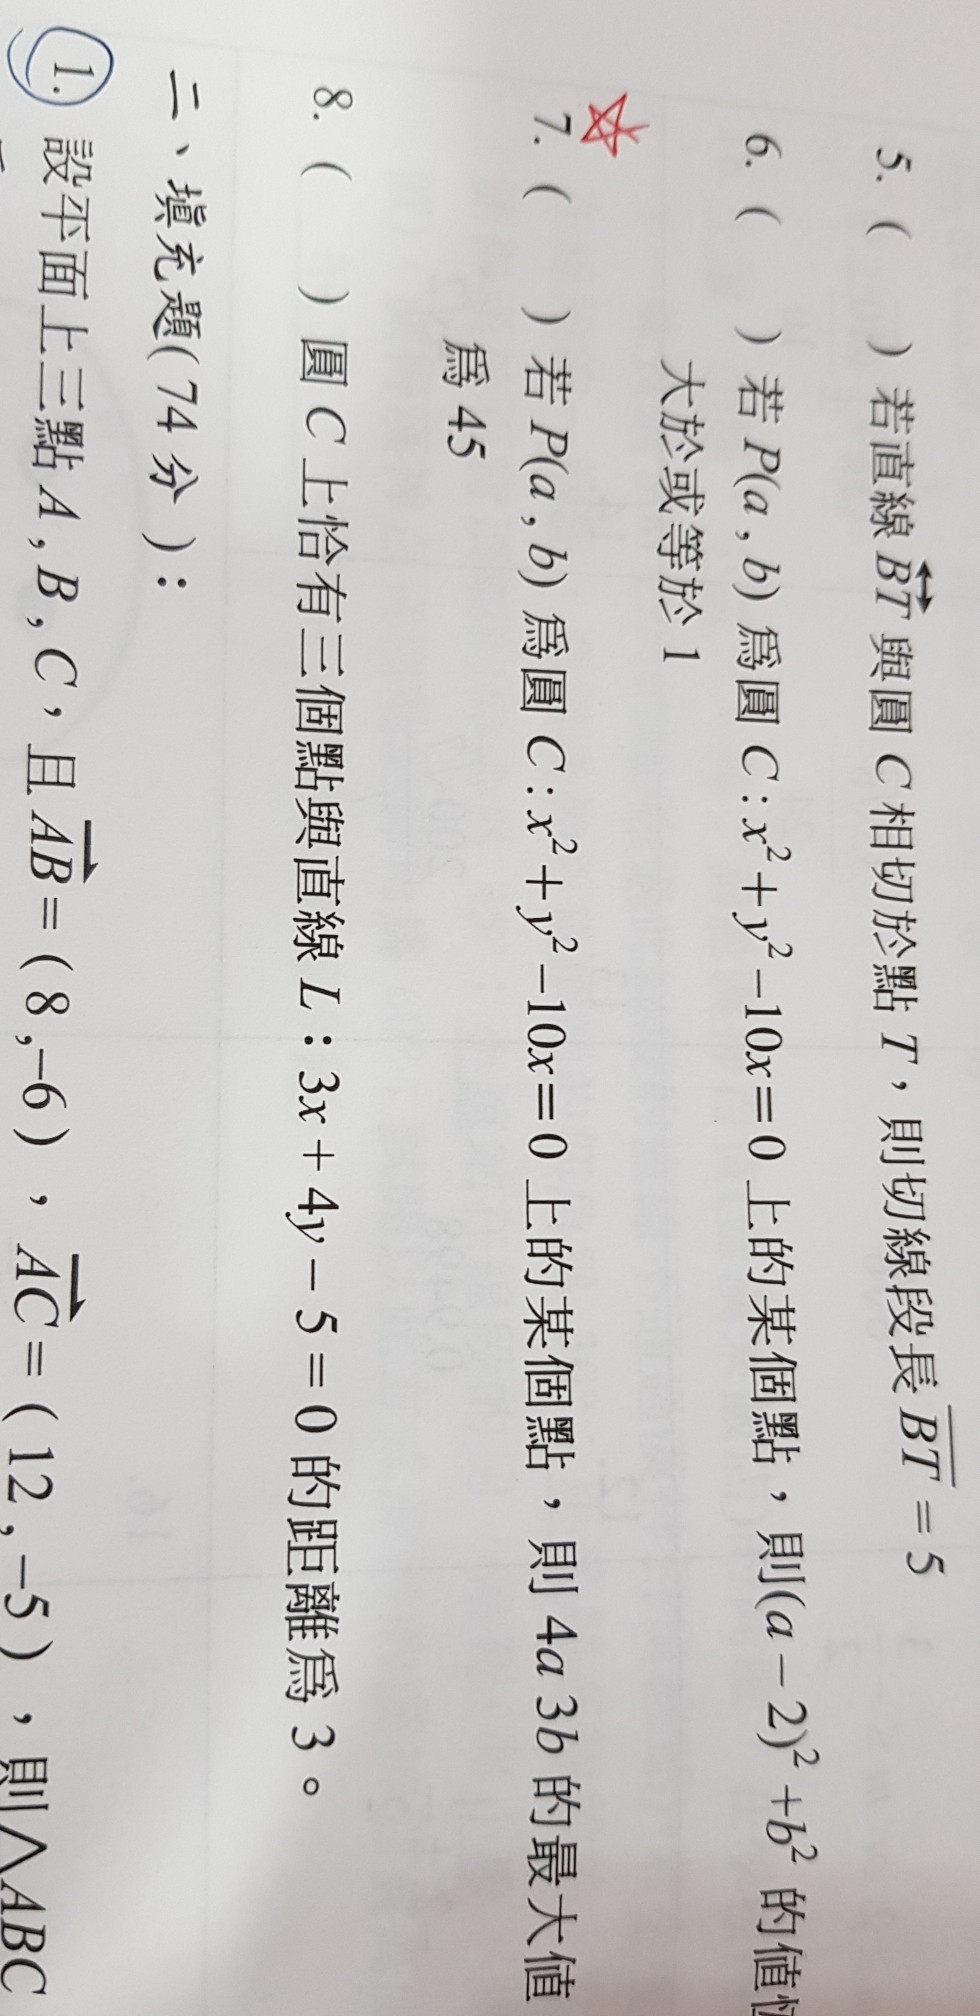 5. (　) 若直線 BT 與圓 C 相切於點 T，則切線段長 BT = 5
6. (　) 若 P(a , b) 爲圓 C : x²+y²−10x=0 上的某個點，則(a − 2)² +b² 的值恆
大於或等於 1
7. (　) 若 P(a , b) 爲圓 C : x²+y²−10x=0 上的某個點，則 4a 3b 的最大值
爲 45
8. (　) 圓 C 上恰有三個點與直線 L : 3x + 4y − 5 = 0 的距離爲 3。
二、填充題( 74 分 )：
1. 設平面上三點 A , B , C，且 AB = ( 8 ,−6 )，AC = ( 12 , −5 )，則△ABC